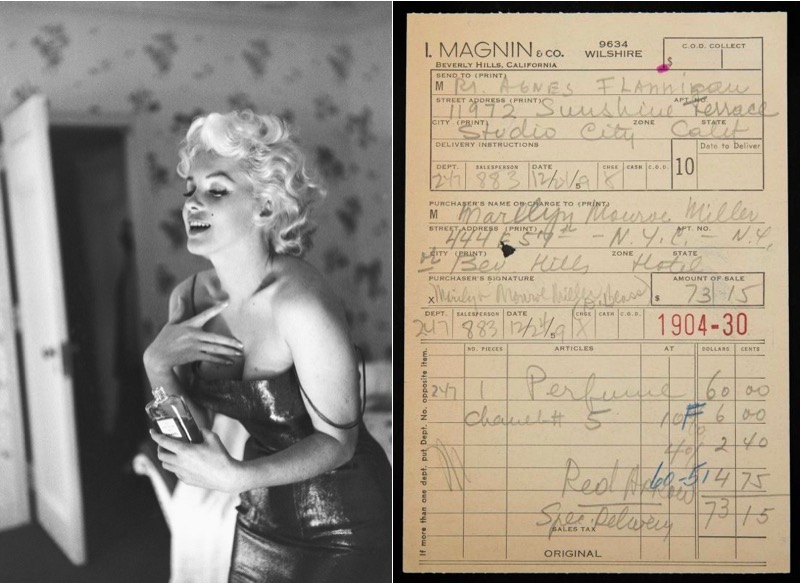 I. MAGNIN & CO.
BEVERLY HILLS, CALIFORNIA
9634
WILSHIRE
C.O.D. COLLECT
$
SEND TO (PRINT)
M Rs. AGNES FLAnnigan
STREET ADDRESS (PRINT) APT. NO.
11972 Sunshine Terrace
CITY (PRINT) ZONE STATE
Studio City Calif
DELIVERY INSTRUCTIONS
Date to Deliver
10
DEPT. SALESPERSON DATE CHGE CASH C.O.D.
247 883 12/21/59 X
PURCHASER'S NAME OR CHARGE TO (PRINT)
M Marilyn Monroe Miller
STREET ADDRESS (PRINT) APT. NO.
444 E 57th - N.Y.C. - N.Y.
CITY (PRINT) ZONE STATE
Bev Hills Hotel
PURCHASER'S SIGNATURE
X Marilyn Monroe Miller
AMOUNT OF SALE
$ 73 15
DEPT. SALESPERSON DATE CHGE CASH C.O.D.
247 883 12/21/59 X
1904-30
NO. PIECES ARTICLES AT DOLLARS CENTS
247 1 Perfume 60 00
Chanel # 5 10 F 6 00
4% 2 40
Red Arrow 60-51 4 75
Spec. Delivery 73 15
SALES TAX
ORIGINAL
If more than one dept. put Dept. No. opposite item.